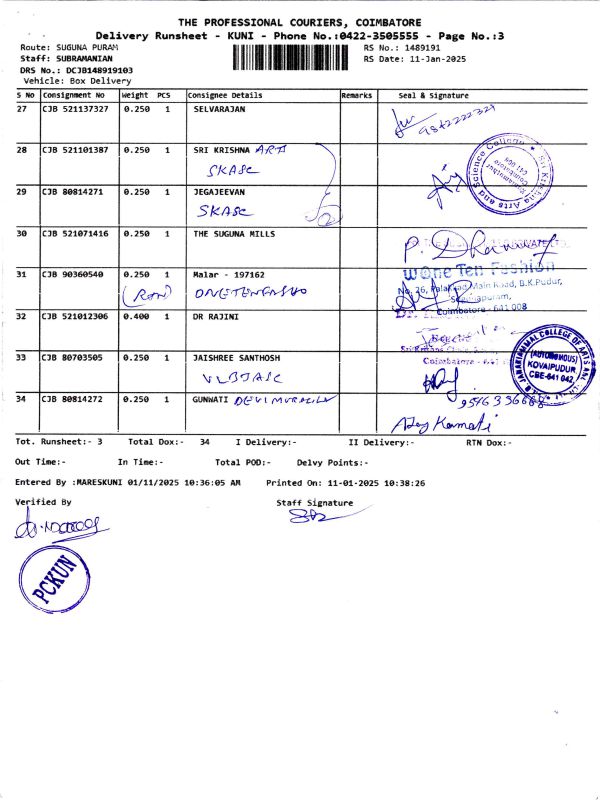 THE PROFESSIONAL COURIERS, COIMBATORE
Delivery Runsheet - KUNI - Phone No.:0422-3505555 - Page No.:3
Route: SUGUNA PURAM RS No.: 1489191
Staff: SUBRAMANIAN RS Date: 11-Jan-2025
DRS No.: DCJB148919103
Vehicle: Box Delivery
S No Consignment No Weight PCS Consignee Details Remarks Seal & Signature
27 CJB 521137327 0.250 1 SELVARAJAN
9842222329
28 CJB 521101387 0.250 1 SRI KRISHNA ARTS
SKASC
Sri Krishna Arts and Science College
29 CJB 80814271 0.250 1 JEGAJEEVAN
SKASC
30 CJB 521071416 0.250 1 THE SUGUNA MILLS
31 CJB 90360540 0.250 1 Malar - 197162
wOne Ten Fashion
No. 26, Palakkad Main Road, B.K.Pudur,
Suguapuram,
Coimbatore - 641 008
32 CJB 521012306 0.400 1 DR RAJINI
33 CJB 80703505 0.250 1 JAISHREE SANTHOSH
VLBJASC
(AUTONOMOUS)
KOVAIPUDUR
CBE-641 042.
34 CJB 80814272 0.250 1 GUNWATI DEVI MURALILA
Ajay Kamati
Tot. Runsheet:- 3 Total Dox:- 34 I Delivery:- II Delivery:- RTN Dox:-
Out Time:- In Time:- Total POD:- Delvy Points:-
Entered By :MARESKUNI 01/11/2025 10:36:05 AM Printed On: 11-01-2025 10:38:26
Verified By Staff Signature
PCKUN